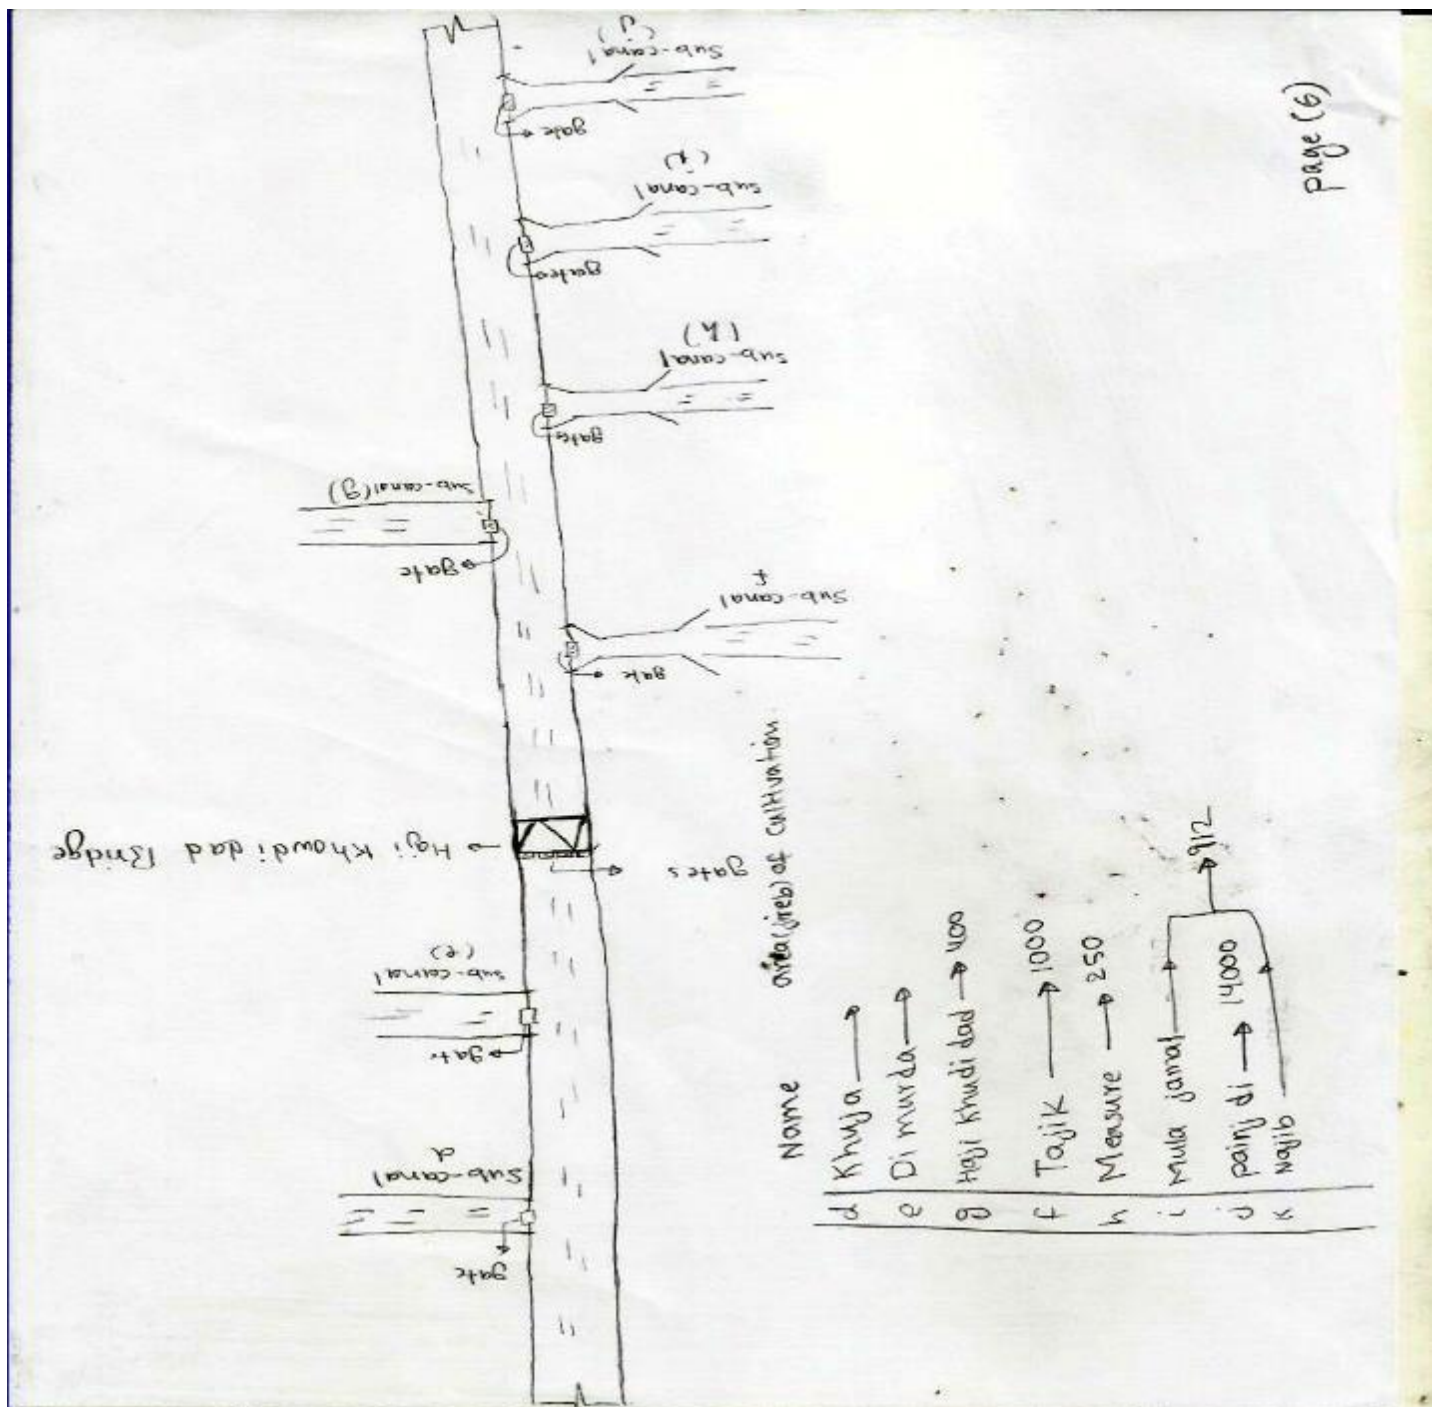 page (6)
Sub-canal
(j)
gate
sub-canal
(i)
gate
sub-canal
(h)
gate
sub-canal (g)
gate
Sub-canal
f
gate
Haji Khowdi dad Bridge
gates
sub-cannal
(e)
gate
Sub-canal
d
gate
Name area (jireb) of cultivation
d Khuja
e Di murda
g Haji Khudi dad → 400
f Tajik → 1000
h Measure → 250
i Mula jamal
j painj di → 14000
k Najib
912